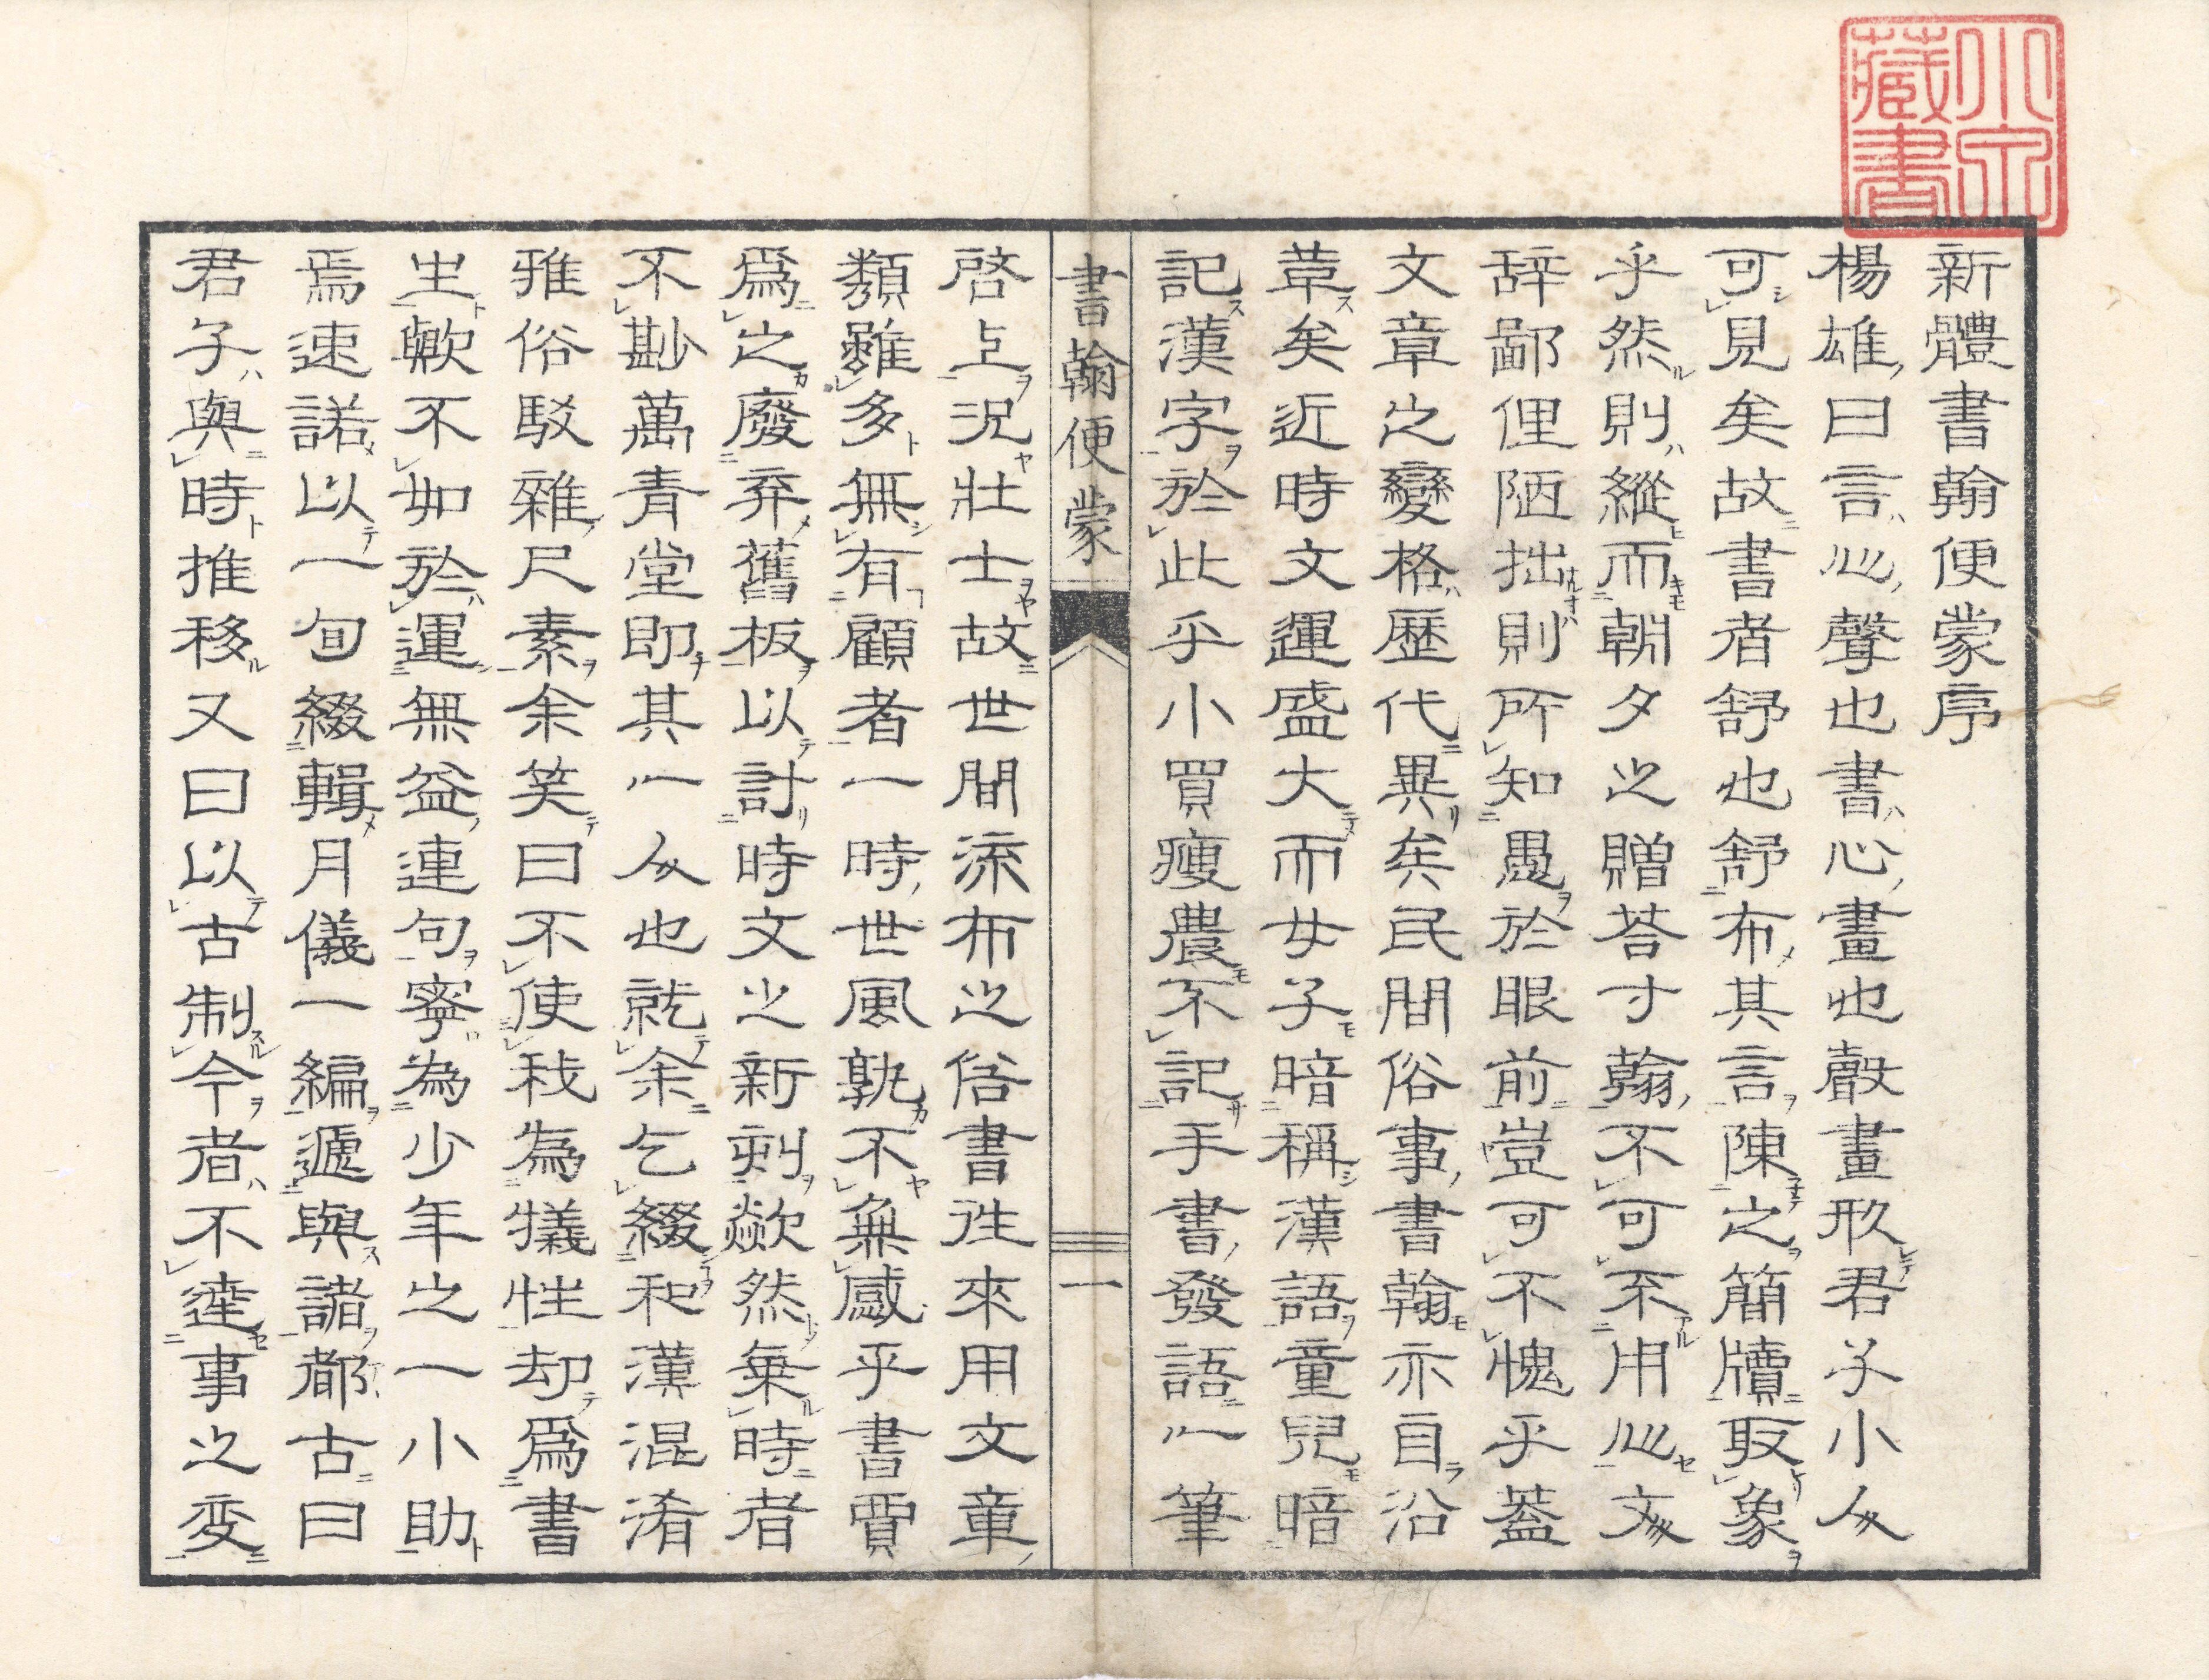 小宗
藏書
新體書翰便蒙序
楊雄曰言心聲也書心畫也聲畫形君子小人
可見矣故書者舒也舒布其言陳之簡牘取象
乎然則縱而朝夕之贈荅寸翰不可不用心文
辞鄙俚陋拙則所知愚於眼前豈可不愧乎蓋
文章之變格歷代異矣民間俗事書翰亦自沿
革矣近時文運盛大而女子暗稱漢語童兒暗
記漢字於此乎小買瘦農不記手書發語一筆
書翰便蒙
一
啓上況壯士故世間流布之俗書徃來用文章
類雖多無有顧者一時世風孰不無感乎書賈
爲之廢弃舊板以討時文之新刻歘然乗時者
不尠萬青堂即其一人也就余乞綴和漢混淆
雅俗駁雜尺素余笑曰不使我為犠牲却爲書
生歟不如於運無益連句寧為少年之一小助
焉速諾以一旬綴輯月儀一編遞與諸都古曰
君子與時推移又曰以古制今者不達事之変